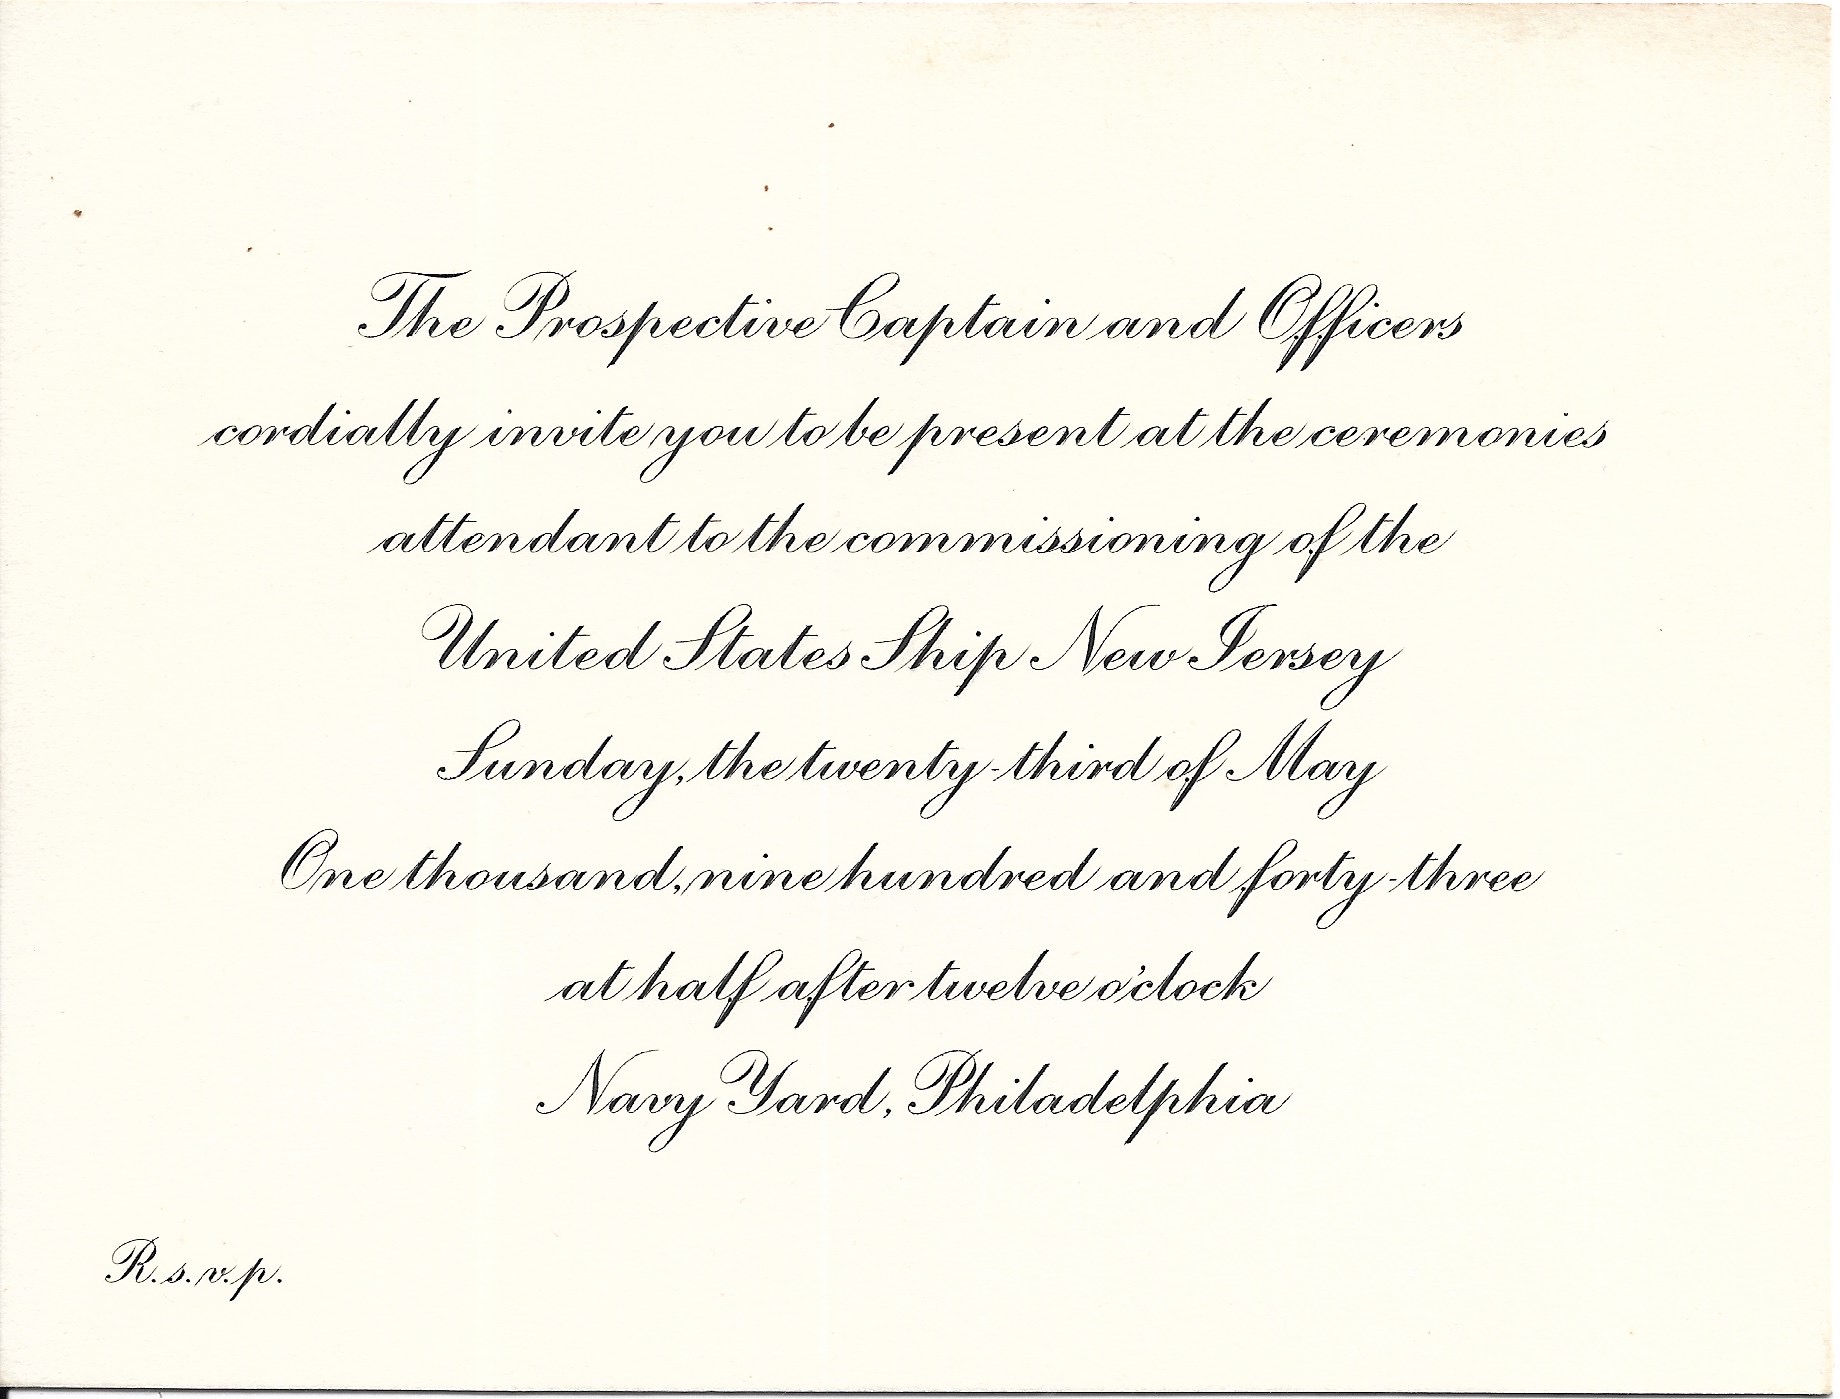 The Prospective Captain and Officers
cordially invite you to be present at the ceremonies
attendant to the commissioning of the
United States Ship New Jersey
Sunday, the twenty-third of May
One thousand, nine hundred and forty-three
at half after twelve o'clock
Navy Yard, Philadelphia
R.s.v.p.